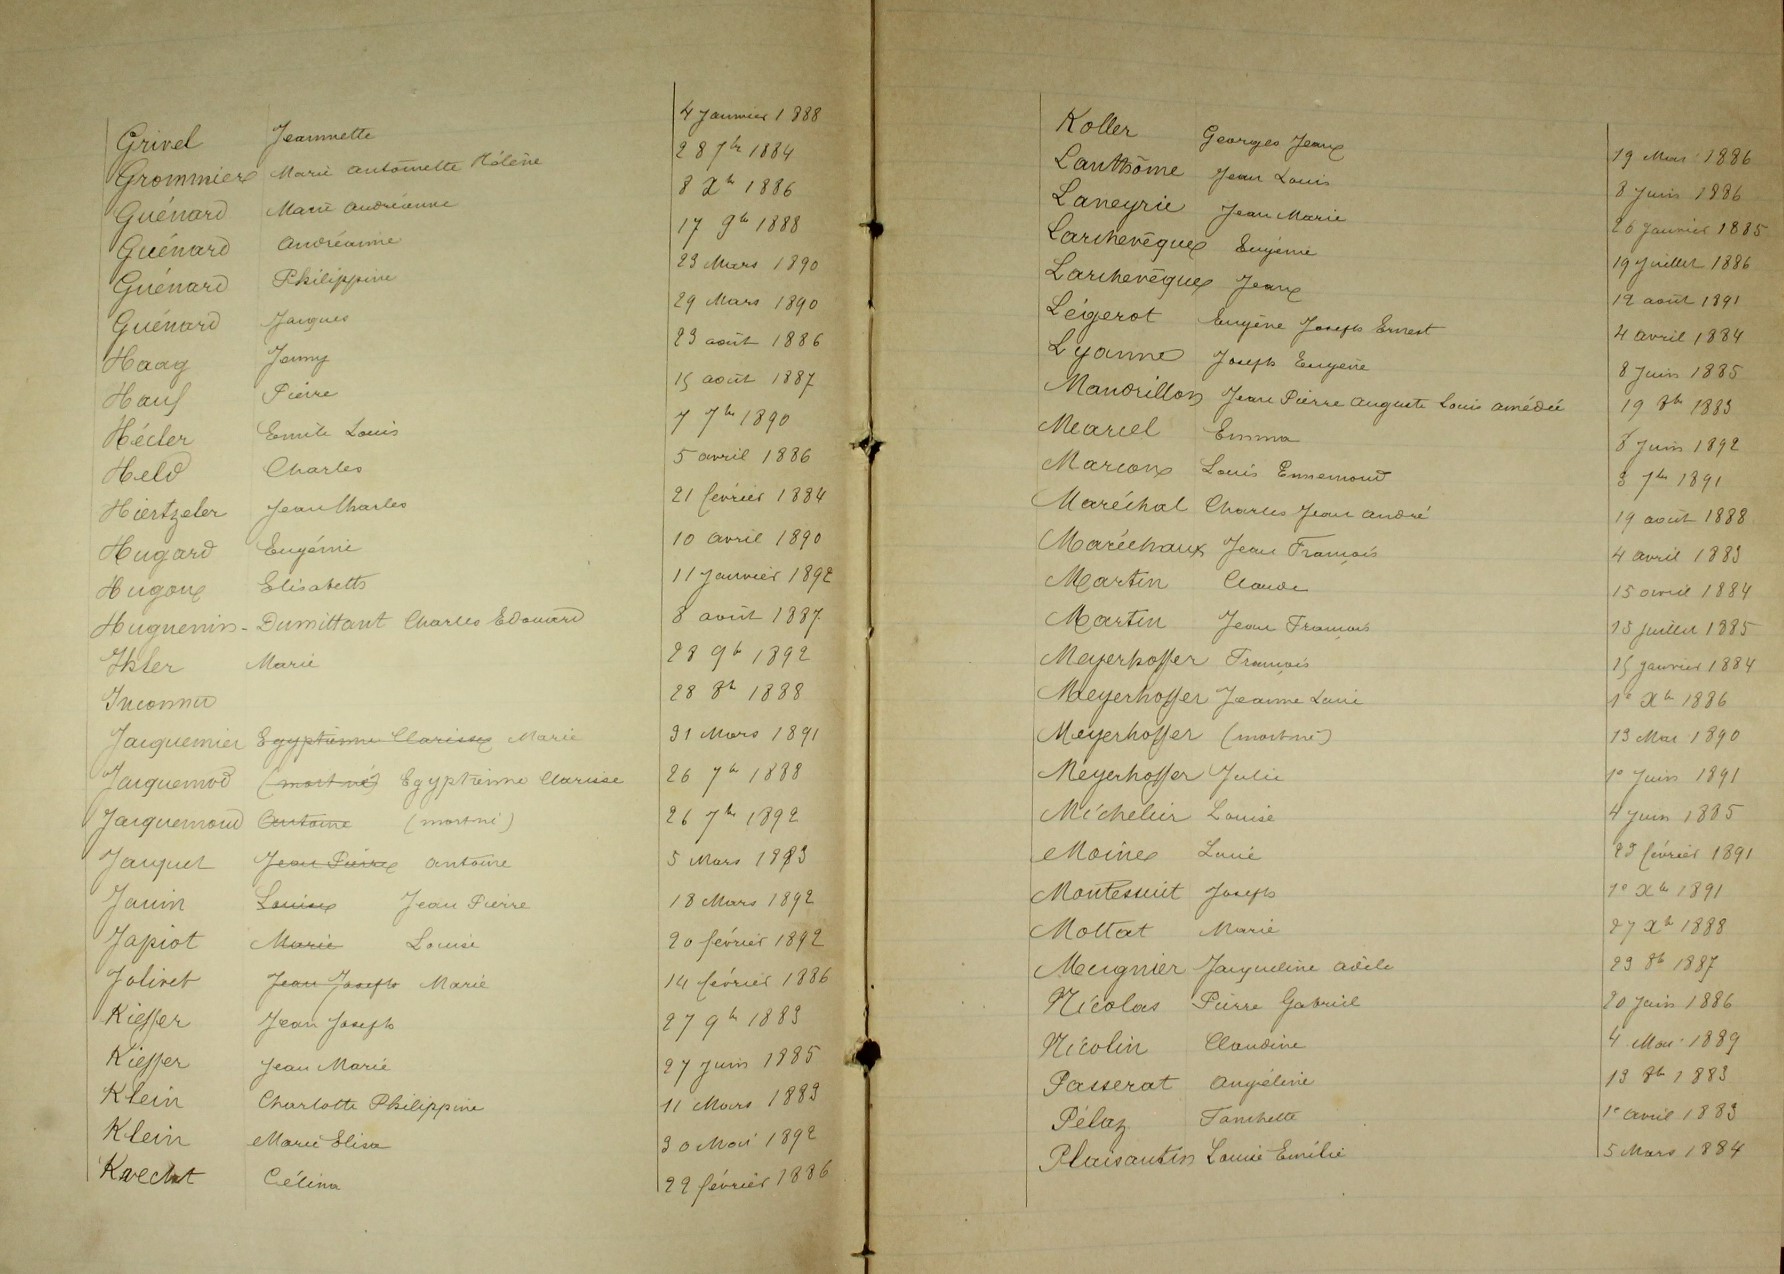 Grivel Jeannette 4 Janvier 1888
Grommier Marie Antoinette Hélène 28 7bre 1884
Guénard Marie Andréanne 8 Xbre 1886
Guénard Andréanne 17 9bre 1888
Guénard Philippine 23 Mars 1890
Guénard Jacques 29 Mars 1890
Haag Jenny 23 août 1886
Hauf Pierre 15 août 1887
Hécler Emile Louis 7 7bre 1890
Held Charles 5 avril 1886
Hiertzeler Jean Charles 21 février 1884
Hugard Eugénie 10 avril 1890
Hugoux Elisabeth 11 Janvier 1892
Huguenin-Dumittant Charles Edouard 8 août 1887
Ikler Marie 28 9b 1892
Inconnu 28 8b 1888
Jacquemier Egyptienne Clarisse Marie 31 Mars 1891
Jacquemod (mort né) Egyptienne Clarisse 26 7b 1888
Jacquemoud Antoine (mort né) 26 7bre 1892
Jacquet Jean Pierre Antoine 5 Mars 1883
Janin Louise Jean Pierre 18 Mars 1892
Japiot Marie Louise 20 février 1892
Jolivet Jean Joseph Marie 14 février 1886
Kieffer Jean Joseph 27 9b 1883
Kieffer Jean Marie 27 Juin 1885
Klein Charlotte Philippine 11 Mars 1883
Klein Marie Elisa 30 Mai 1892
Knecht Célina 22 février 1886
Koller Georges Jean 19 Mai 1886
Lanthôme Jean Louis 8 Juin 1886
Laneyrie Jean Marie 26 Janvier 1885
Larchevêque Eugénie 19 Juillet 1886
Larchevêque Jean 12 août 1891
Légerot Eugène Joseph Ernest 4 avril 1884
Lyanne Joseph Eugène 8 Juin 1885
Mandrillon Jean Pierre Auguste Louis Amédée 19 8b 1883
Marcel Emma 8 Juin 1892
Marcoux Louis Ennemond 3 7bre 1891
Maréchal Charles Jean André 19 août 1888
Maréchaux Jean François 4 avril 1883
Martin Claude 15 avril 1884
Martin Jean François 15 Juillet 1885
Meyerhoffer François 15 Janvier 1884
Meyerhoffer Jeanne Louise 1e Xbre 1886
Meyerhoffer (mort né) 13 Mai 1890
Meyerhoffer Julie 1e Juin 1891
Michelier Louise 4 Juin 1885
Moine Louise 23 février 1891
Montessuit Joseph 1e Xbre 1891
Mottat Marie 27 Xb 1888
Mugnier Jacqueline Adèle 23 8b 1887
Nicolas Pierre Gabriel 20 Juin 1886
Nicolin Claudine 4 Mai 1889
Passerat Angéline 13 8b 1883
Pélaz Fanchette 1e avril 1883
Plaisantin Louise Emilie 5 Mars 1884